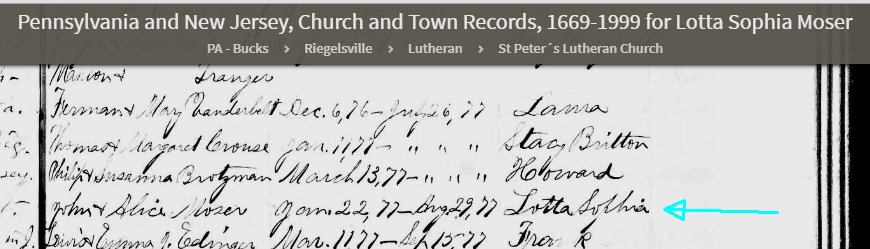 Pennsylvania and New Jersey, Church and Town Records, 1669-1999 for Lotta Sophia Moser
PA - Bucks > Riegelsville > Lutheran > St Peter´s Lutheran Church
Marion & Granger
a. Ferman & Mary Vanderbelt Dec. 6, 76 - July 26, 77 Laura
Thomas & Margaret Crouse Jan. 11, 77 - " " " Stacy Britton
Philip & Susanna Brotzman March 13, 77 - " " " Howard
John & Alice Moser Jan. 22, 77 - Aug 29, 77 Lotta Sophia
Lewis & Emma J. Edinger Mar. 11 77 - Sep 15, 77 Frank